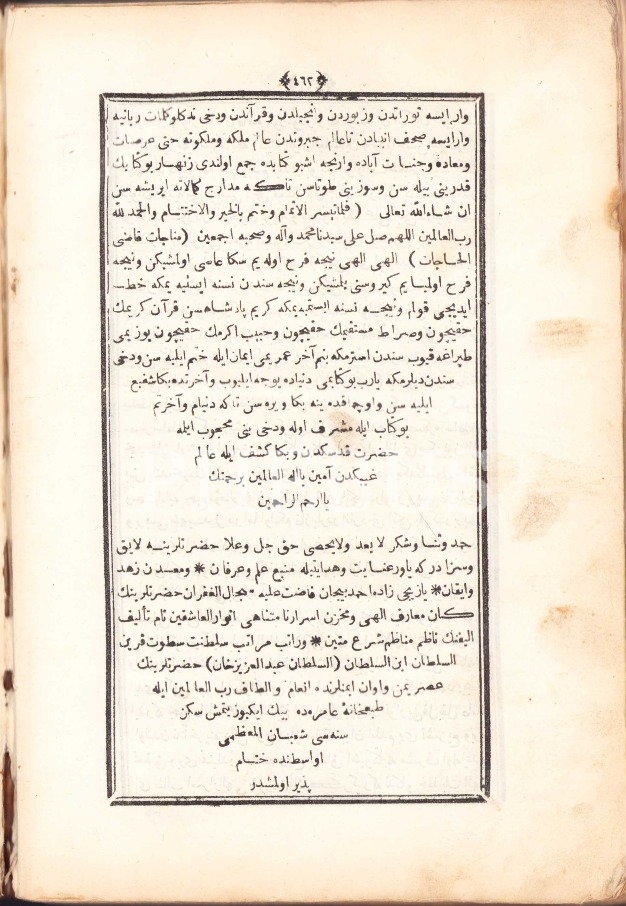 ٤٦٢
وار ایسه توراتدن وزبوردن وانجیلدن وقرآندن ودخی نه کلو کلمات ربانیه
وار ایسه صحف انبیادن تا عالم جبروتدن عالم ملکه وملکوته حتی عرصات
ومعاده وجنات آباده وارنجه اشبو کتابده جمع اولندی زنهار بو کتابك
قدرینی بیله سن وسوزینی طوته سن تاکه مدارج کمالاته ایریشه سن
ان شاءالله تعالی ( فلما تیسر الاتمام وختم بالخیر والاختتام والحمد لله
رب العالمین اللهم صل علی سیدنا محمد وآله وصحبه اجمعین ( مناجات قاضی
الحاجات ) الهی الهی نیجه فرح اوله یم سکا عاصی اولمشیکن ونیجه
فرح اولمیایم کیروسنی بلمشیکن ونیجه سندن نسنه ایستیه یمکه خطا
ایدیجی قولم ونیجه نسنه ایستمیه یمکه کریم پادشاه سن قرآن کریمك
حقیچون وصراط مستقیمك حقیچون وحبیب اکرمك حقیچون یوزیمی
طپراغه قیوب سندن استرمکه بنم آخر عمریمی ایمان ایله ختم ایلیه سن ودخی
سندن دیلرمکه یارب بو کتابمی دنیاده یوجه ایلیوب وآخرتده بکا شفیع
ایلیه سن واوچ افده ینه بکا ویره سن تاکه دنیام وآخرتم
بو کتاب ایله مشرف اوله ودخی بنی محجوب ایله
حضرت قدسکدن وبکا کشف ایله عالم
غیبکدن آمین یا اله العالمین برحمتك
یا ارحم الراحمین
حمد وثنا وشکر لا یعد ولا یحصی حق جل وعلا حضرتلرینه لایق
وسزادر که یاور عنایت وهدایتیله منبع علم وعرفان * ومعدن زهد
وایقان * یازیجی زاده احمد بیجان فاضت علیه سجال الغفران حضرتلرینك
کان معارف الهی ومخزن اسرار نامتناهی انوار العاشقین نام تألیف
الیفنك ناظم مناظم شرع متین * وراتب مراتب سلطنت سطوت قرین
السلطان ابن السلطان ( السلطان عبدالعزیز خان ) حضرتلرینك
عصر یمن واوان ایمنلرنده انعام والطاف رب العالمین ایله
طبعخانهٔ عامره ده بیك ایکیوز یتمش سکز
سنه سی شعبان المعظمی
اواسطنده ختام
پذیر اولمشدر